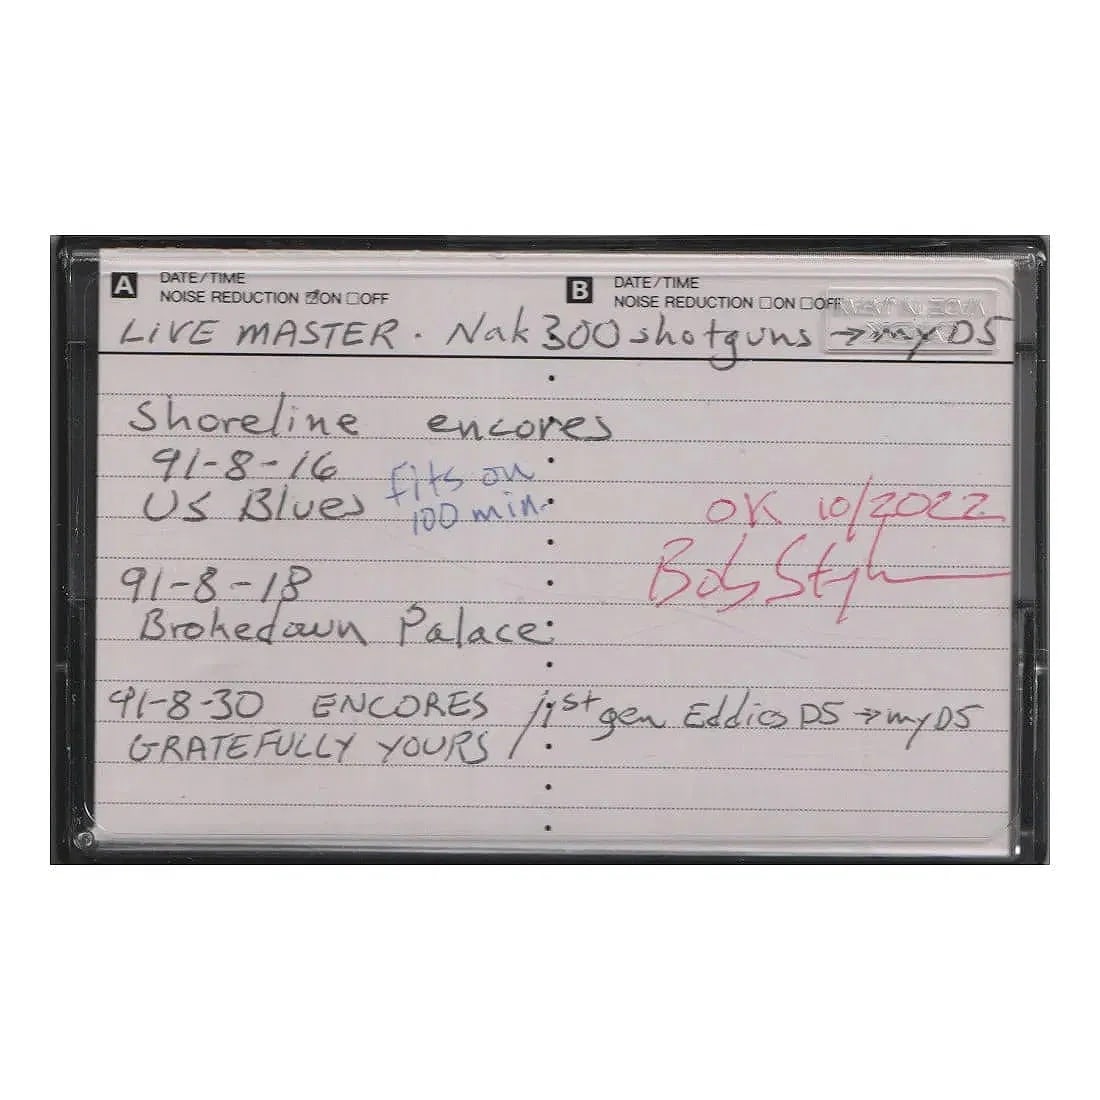 A DATE/TIME
NOISE REDUCTION ☑ON ☐OFF
B DATE/TIME
NOISE REDUCTION ☐ON ☐OFF
LIVE MASTER · Nak 300 shotguns → my D5
Shoreline encores
91-8-16
US Blues
fits on
100 min.
OK 10/2022
91-8-18
Brokedown Palace
91-8-30 ENCORES / 1st gen Eddies D5 → my D5
GRATEFULLY YOURS